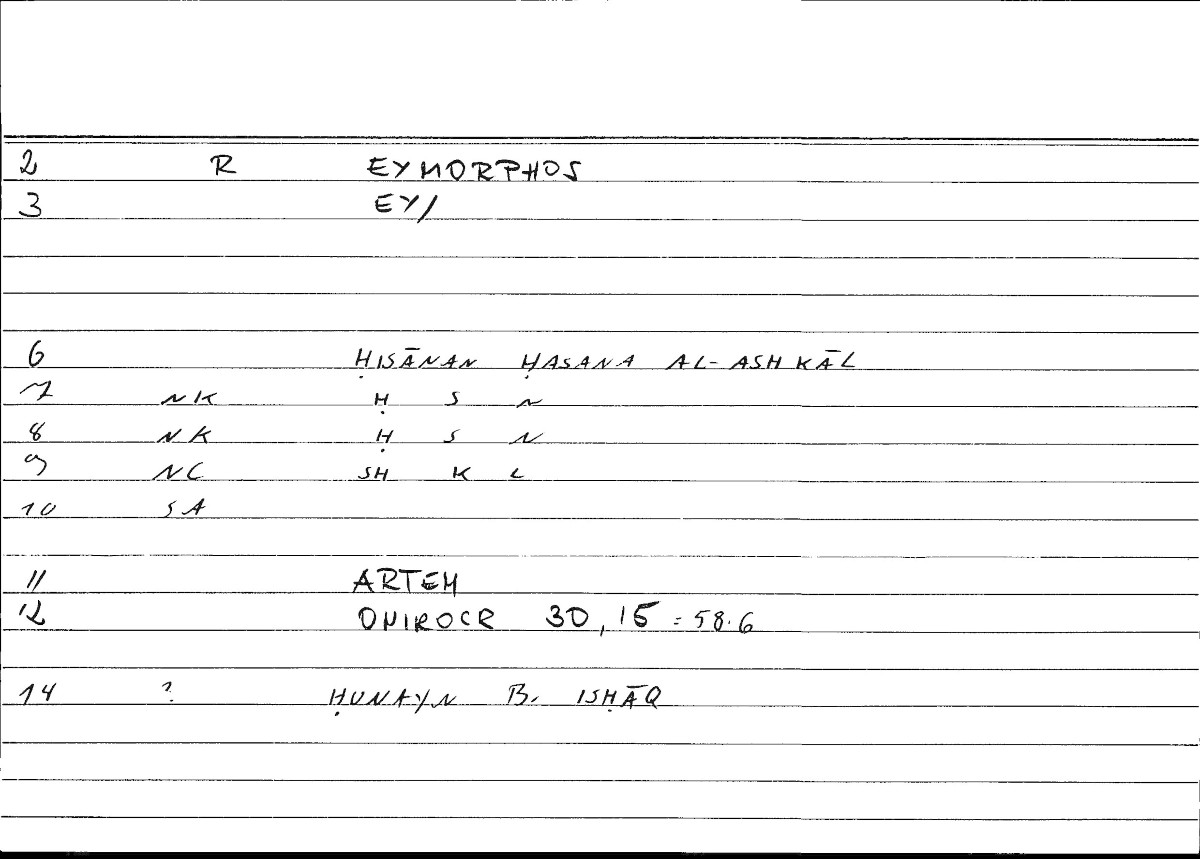 2 R EYMORPHOS
3 EY/
6 ḤISĀNAN ḤASANA AL-ASHKĀL
7 NK Ḥ S N
8 NK Ḥ S N
9 NC SH K L
10 SA
11 ARTEM
12 ONIROCR 30,15 = 58.6
14 ? ḤUNAYN B. ISḤĀQ